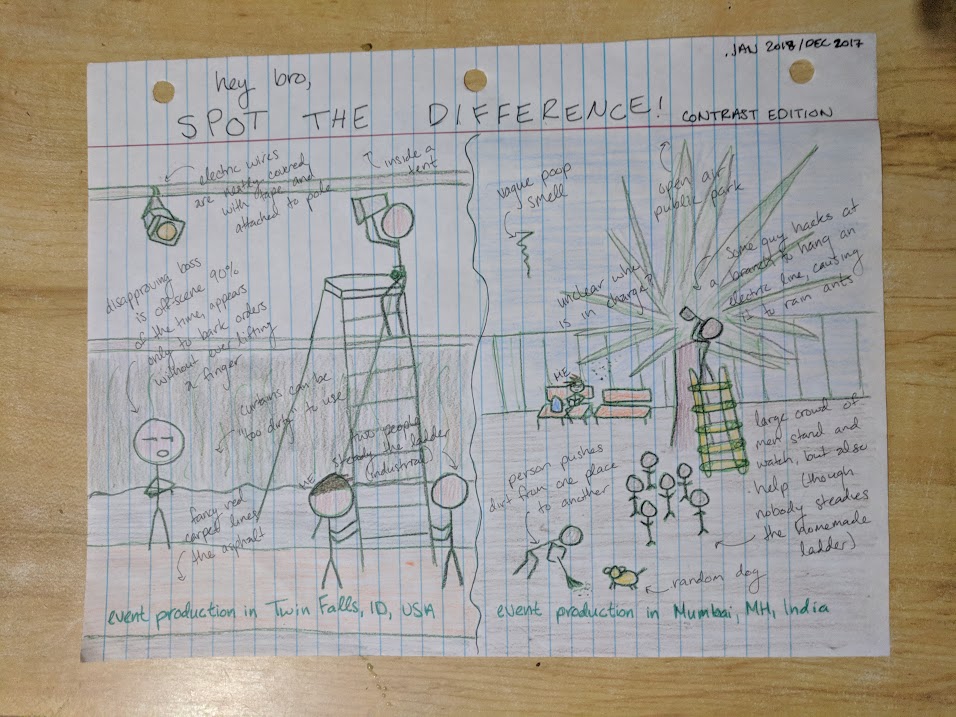 JAN 2018/DEC 2017
hey bro,
SPOT THE DIFFERENCE! CONTRAST EDITION
electric wires
are neatly covered
with tape and
attached to pole
inside a
tent
disapproving boss
is off-scene 90%
of the time, appears
only to bark orders
without ever lifting
a finger
curtains can be
"too dirty" to use
two people
steady the ladder
(industrial)
ME
fancy red
carpet lines
the asphalt
event production in Twin Falls, ID, USA
vague poop
smell
open air
public park
unclear who
is in charge?
some guy hacks at
a branch to hang an
electric line, causing
it to rain ants
ME
person pushes
dirt from one place
to another
large crowd of
men stand and
watch, but also
help (though
nobody steadies
the homemade
ladder)
random dog
event production in Mumbai, MH, India